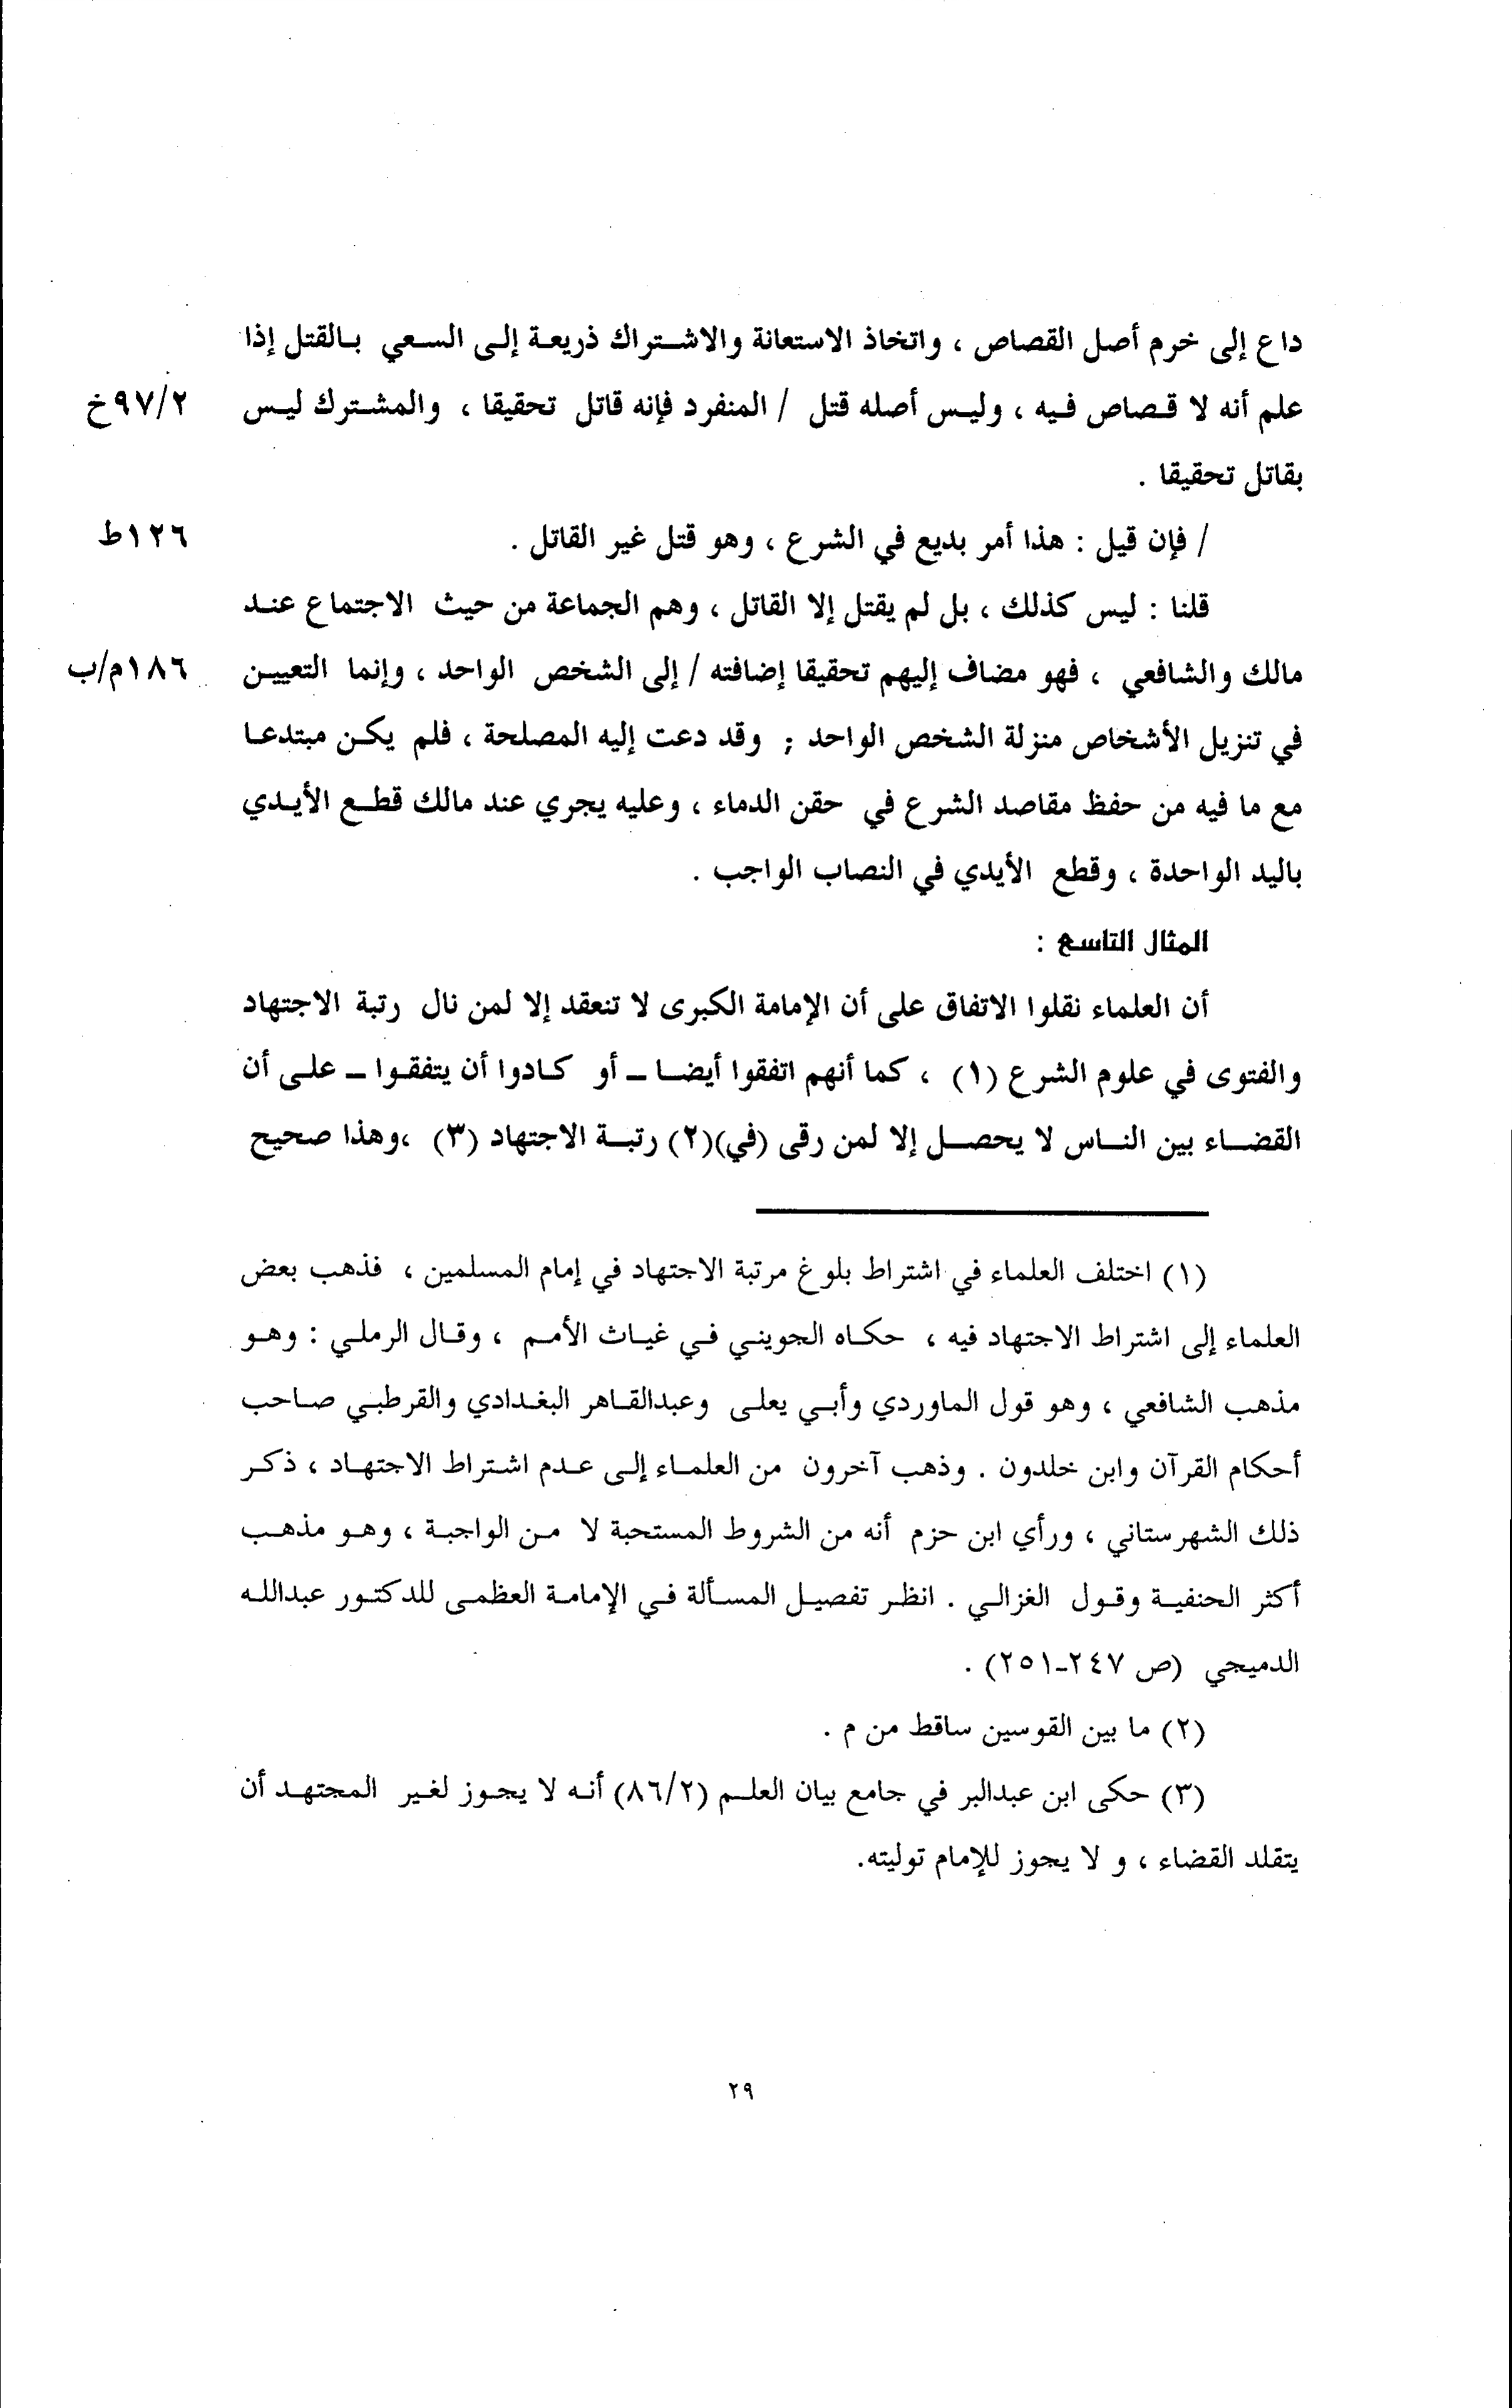 داع إلى خرم أصل القصاص ، واتخاذ الاستعانة والاشتراك ذريعة إلى السعي بالقتل إذا
علم أنه لا قصاص فيه ، وليس أصله قتل / المنفرد فإنه قاتل تحقيقا ، والمشترك ليس ٩٧/٢خ
بقاتل تحقيقا .
/ فإن قيل : هذا أمر بديع في الشرع ، وهو قتل غير القاتل . ١٢٦ط
قلنا : ليس كذلك ، بل لم يقتل إلا القاتل ، وهم الجماعة من حيث الاجتماع عند
مالك والشافعي ، فهو مضاف إليهم تحقيقا إضافته / إلى الشخص الواحد ، وإنما التعيين ١٨٦م/ب
في تنزيل الأشخاص منزلة الشخص الواحد ; وقد دعت إليه المصلحة ، فلم يكن مبتدعا
مع ما فيه من حفظ مقاصد الشرع في حقن الدماء ، وعليه يجري عند مالك قطع الأيدي
باليد الواحدة ، وقطع الأيدي في النصاب الواجب .
المثال التاسع :
أن العلماء نقلوا الاتفاق على أن الإمامة الكبرى لا تنعقد إلا لمن نال رتبة الاجتهاد
والفتوى في علوم الشرع (١) ، كما أنهم اتفقوا أيضا ــ أو كادوا أن يتفقوا ــ على أن
القضاء بين الناس لا يحصل إلا لمن رقى (في)(٢) رتبة الاجتهاد (٣) ،وهذا صحيح
(١) اختلف العلماء في اشتراط بلوغ مرتبة الاجتهاد في إمام المسلمين ، فذهب بعض
العلماء إلى اشتراط الاجتهاد فيه ، حكاه الجويني في غياث الأمم ، وقال الرملي : وهو
مذهب الشافعي ، وهو قول الماوردي وأبي يعلى وعبدالقاهر البغدادي والقرطبي صاحب
أحكام القرآن وابن خلدون . وذهب آخرون من العلماء إلى عدم اشتراط الاجتهاد ، ذكر
ذلك الشهرستاني ، ورأي ابن حزم أنه من الشروط المستحبة لا من الواجبة ، وهو مذهب
أكثر الحنفية وقول الغزالي . انظر تفصيل المسألة في الإمامة العظمى للدكتور عبدالله
الدميجي (ص ٢٤٧-٢٥١) .
(٢) ما بين القوسين ساقط من م .
(٣) حكى ابن عبدالبر في جامع بيان العلم (٨٦/٢) أنه لا يجوز لغير المجتهد أن
يتقلد القضاء ، و لا يجوز للإمام توليته.
٢٩